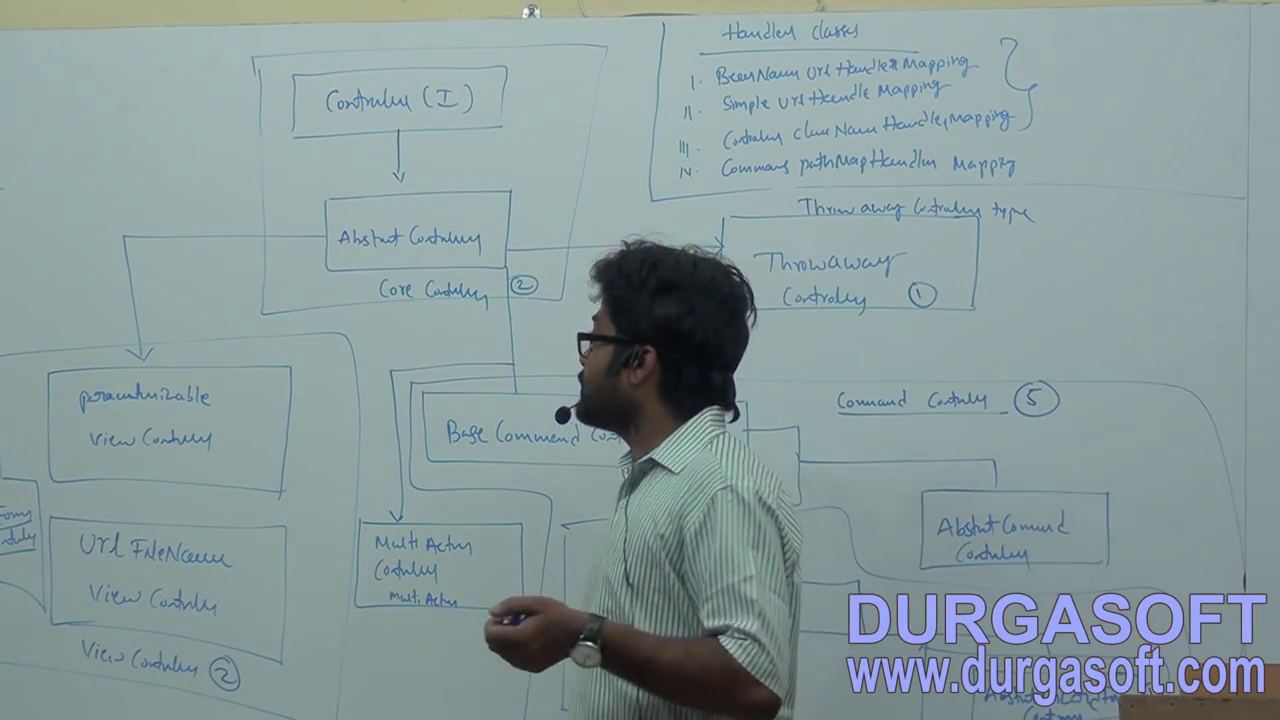 Handler Classes
I. BeanName Url Handler Mapping
II. Simple Url Handle Mapping
III. Controller ClassName Handler Mapping
IV. Commons pathMap Handler Mapping
Controller (I)
Abstract Controller
Core Controller 2
Throw away Controller type
Throwaway
Controller 1
parameterizable
view Controller
Url FileName
View Controller
View Controller 2
Base Command
Command Controller 5
Multi Action
Controller
Multi Action
Abstract Command
Controller
DURGASOFT
www.durgasoft.com